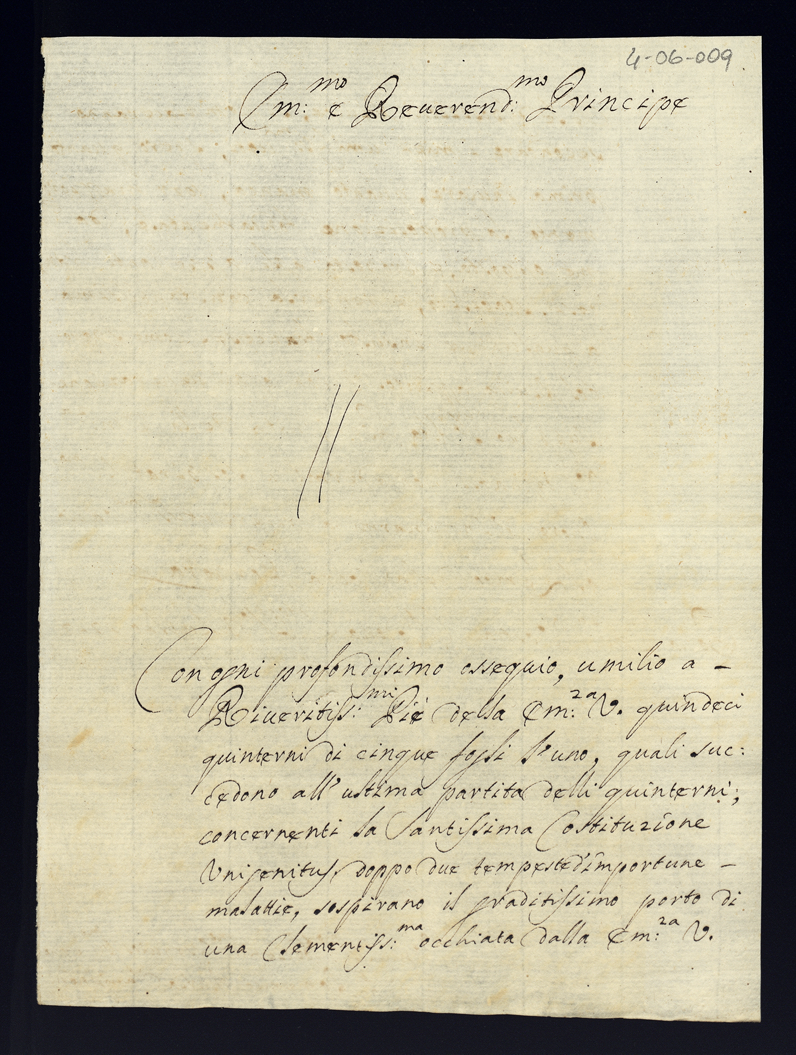 4-06-009
Em:mo e Reuerend:mo Principe
Con ogni profondissimo ossequio, umilio a -
Riueritiss:mi Piè della Em:za V. quindeci
quinterni di cinque fogli l'uno, quali suc:
cedono all'ultima partita delli quinterni;
concernenti la Santissima Costituzione
Unigenitus, doppo due tempeste d'importune -
malattie, sospirano il graditissimo porto di
una Clementiss:ma occhiata dalla Em:za V.